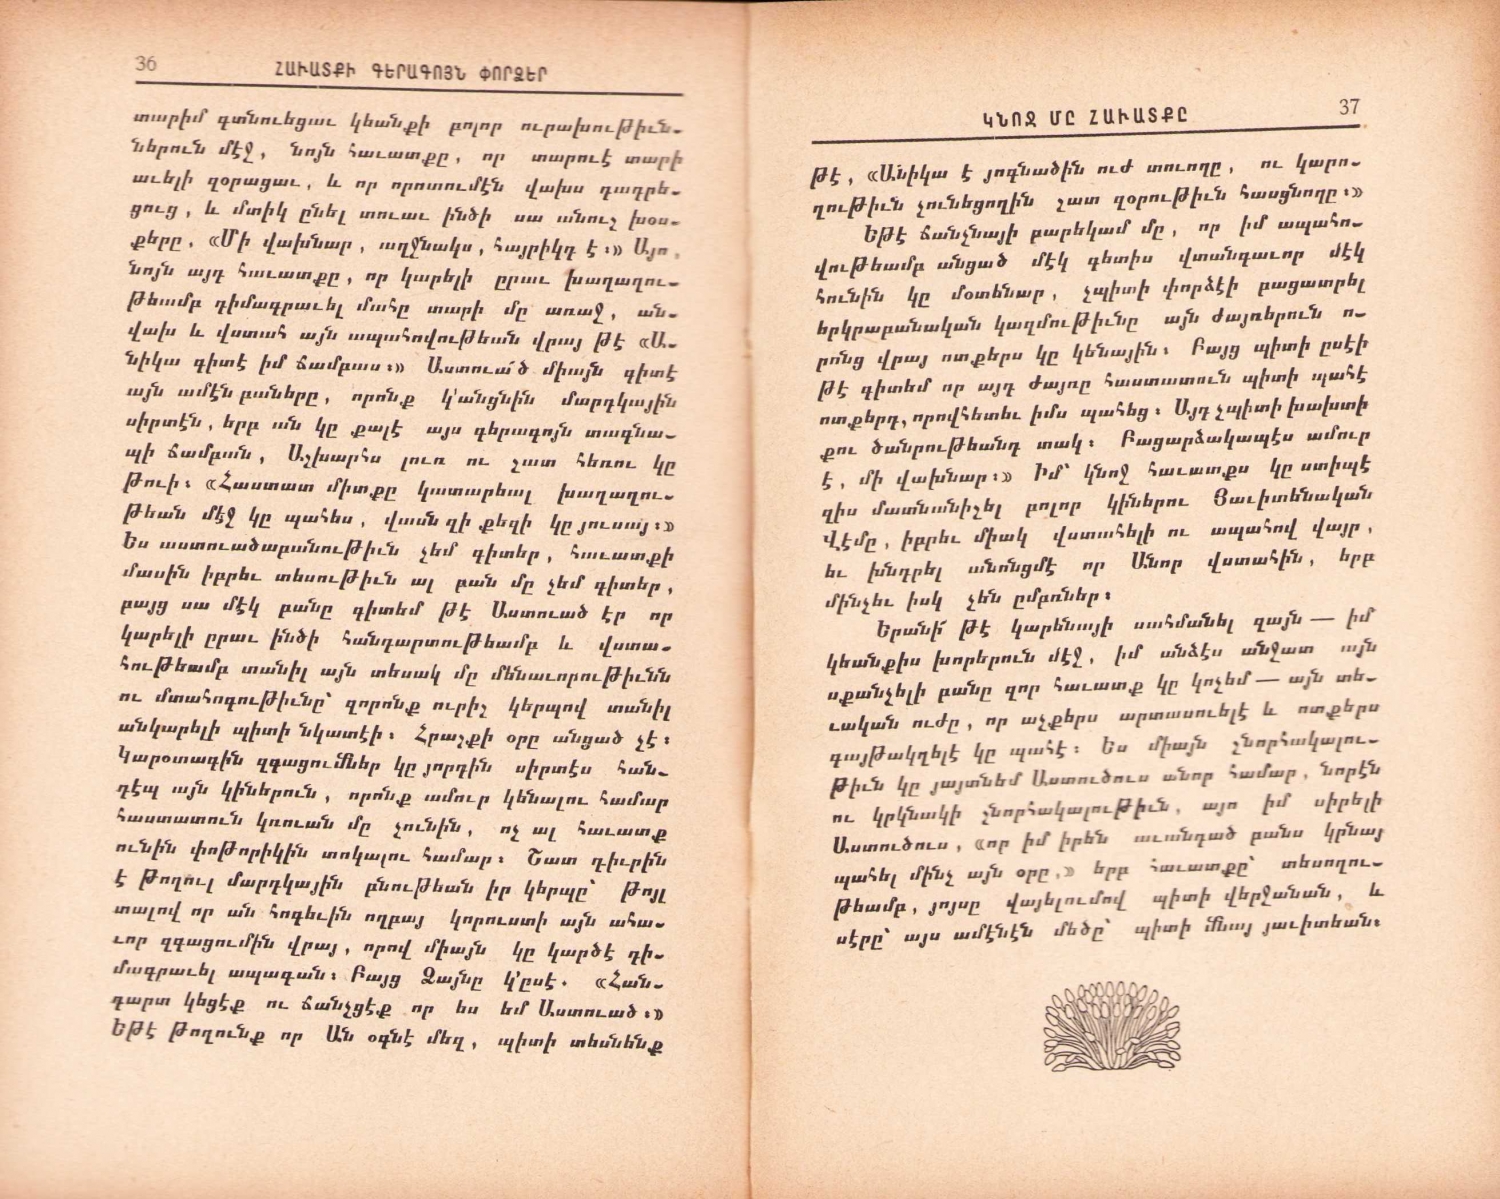 36
ՀԱՒԱՏՔԻ ԳԵՐԱԳՈՅՆ ՓՈՐՁԵՐ
տարիմ գտնուեցաւ կեանքի բոլոր ուրախութիւն-
ներուն մէջ, նոյն հաւատքը, որ տարուէ տարի
աւելի զօրացաւ, և որ որոտումէն վախս դադրե-
ցուց, և մտիկ ընել տուաւ ինծի սա անուշ խօս-
քերը, «Մի վախնար, աղջնակս, հայրիկդ է։» Այո,
նոյն այդ հաւատքը, որ կարելի ըրաւ խաղաղու-
թեամբ դիմագրաւել մահը տարի մը առաջ, ան-
վախ և վստահ այն ապահովութեան վրայ թէ «Ա-
նիկա գիտէ իմ ճամբաս։» Աստուա՛ծ միայն գիտէ
այն ամէն բաները, որոնք կ'անցնին մարդկային
սիրտէն, երբ ան կը քալէ այս գերագոյն տագնա-
պի ճամբան, Աշխարհս լուռ ու շատ հեռու կը
թուի։ «Հաստատ միտքը կատարեալ խաղաղու-
թեան մէջ կը պահես, վասն զի քեզի կը յուսայ։»
Ես աստուածաբանութիւն չեմ գիտեր, հաւատքի
մասին իբրեւ տեսութիւն ալ բան մը չեմ գիտեր,
բայց սա մէկ բանը գիտեմ թէ Աստուած էր որ
կարելի ըրաւ ինծի հանդարտութեամբ և վստա-
հութեամբ տանիլ այն տեսակ մը մենաւորութիւնն
ու մտահոգութիւնը՝ զորոնք ուրիշ կերպով տանիլ
անկարելի պիտի նկատէի։ Հրաշքի օրը անցած չէ։
Կարօտագին զգացումներ կը յորդին սիրտէս հան-
դէպ այն կիներուն, որոնք ամուր կենալու համար
հաստատուն կռուան մը չունին, ոչ ալ հաւատք
ունին փոթորիկին տոկալու համար։ Շատ դիւրին
է թողուլ մարդկային բնութեան իր կերպը՝ թոյլ
տալով որ ան հոգեւին ողբայ կորուստի այն ահա-
ւոր զգացումին վրայ, որով միայն կը կարծէ դի-
մագրաւել ապագան։ Բայց Ձայնը կ'ըսէ. «Հան-
դարտ կեցէք ու ճանչցէք որ ես եմ Աստուած։»
Եթէ թողունք որ Ան օգնէ մեզ, պիտի տեսնենք
ԿՆՈՋ ՄԸ ՀԱՒԱՏՔԸ
37
թէ, «Անիկա է յոգնածին ուժ տուողը, ու կարո-
ղութիւն չունեցողին շատ զօրութիւն հասցնողը։»
Եթէ ճանչնայի բարեկամ մը, որ իմ ապահո-
վութեամբ անցած մէկ գետիս վտանգաւոր մէկ
հունին կը մօտենար, չպիտի փորձէի բացատրել
երկրաբանական կազմութիւնը այն ժայռերուն ո-
րոնց վրայ ոտքերս կը կենային։ Բայց պիտի ըսէի
թէ գիտեմ որ այդ ժայռը հաստատուն պիտի պահէ
ոտքերդ, որովհետեւ իմս պահեց։ Այդ չպիտի խախտի
քու ծանրութեանդ տակ։ Բացարձակապէս ամուր
է, մի վախնար։» Իմ՝ կնոջ հաւատքս կը ստիպէ
զիս մատնանիշել բոլոր կիներու Յաւիտենական
Վէմը, իբրեւ միակ վստահելի ու ապահով վայր,
եւ խնդրել անոնցմէ որ Անոր վստահին, երբ
մինչեւ իսկ չեն ըմբռներ։
Երանի՜ թէ կարենայի սահմանել զայն — իմ
կեանքիս խորերուն մէջ, իմ անձէս անջատ այն
սքանչելի բանը զոր հաւատք կը կոչեմ — այն տե-
ւական ուժը, որ աչքերս արտասուելէ և ոտքերս
գայթակղելէ կը պահէ։ Ես միայն շնորհակալու-
թիւն կը յայտնեմ Աստուծուս անոր համար, նորէն
ու կրկնակի շնորհակալութիւն, այո իմ սիրելի
Աստուծուս, «որ իմ իրեն աւանդած բանս կրնայ
պահել մինչ այն օրը,» երբ հաւատքը՝ տեսողու-
թեամբ, յոյսը վայելումով պիտի վերջանան, և
սէրը՝ այս ամէնէն մեծը՝ պիտի մնայ յաւիտեան։